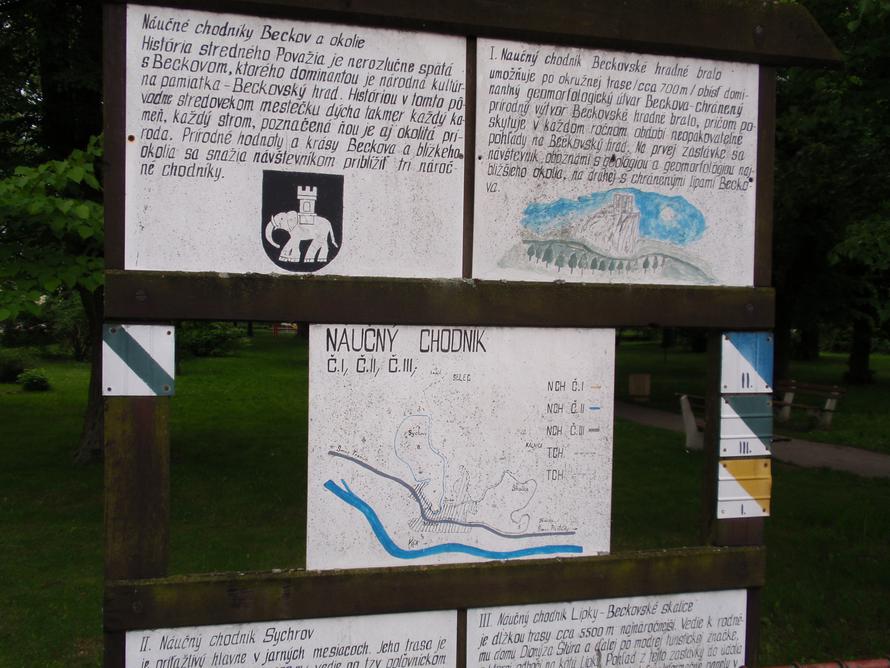 Náučné chodníky Beckov a okolie
História stredného Považia je nerozlučne spätá
s Beckovom, ktorého dominantou je národná kultúr-
na pamiatka - Beckovský hrad. Históriou v tomto pô-
vodne stredovekom mestečku dýcha takmer každý ka-
meň, každý strom, poznačená ňou je aj okolitá prí-
roda. Prírodné hodnoty a krásy Beckova a blízkeho
okolia sa snažia návštevníkom priblížiť tri nároč-
né chodníky.
I. Náučný chodník Beckovské hradné bralo
umožňuje po okružnej trase /cca 700 m/ obísť domi-
nantný geomorfologický útvar Beckova-chránený
prírodný výtvor Beckovské hradné bralo, pričom po-
skytuje v každom ročnom období neopakovateľné
pohľady na Beckovský hrad. Na prvej zastávke sa
návštevník oboznámi s geológiou a geomorfológiou naj-
bližšieho okolia, na druhej s chránenými lipami Becko-
va.
NAUČNÝ CHODNÍK
Č.I, Č.II, Č.III,
SELEC
NCH Č.I
NCH Č.II
NCH Č.III
KALNICA
TCH
TCH
Sychrov
Skalice
Váh
II.
III.
I.
II. Náučný chodník Sychrov
je príťažlivý hlavne v jarných mesiacoch. Jeho trasa je
vedie na tzv. poľovníckom
III. Náučný chodník Lipky - Beckovské skalice
je dĺžkou trasy cca 5500 m najnáročnejší. Vedie k rodné-
mu domu Dionýza Štúra a ďalej po modrej turistic. značke,
na kótu Lipky. Pohľad z tejto zastávky do údolia